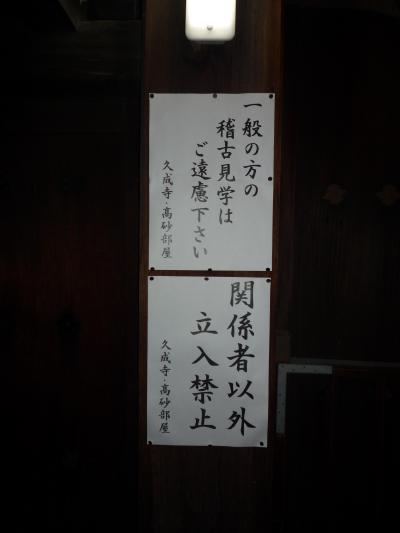 一般の方の
稽古見学は
ご遠慮下さい
久成寺・高砂部屋
関係者以外
立入禁止
久成寺・高砂部屋